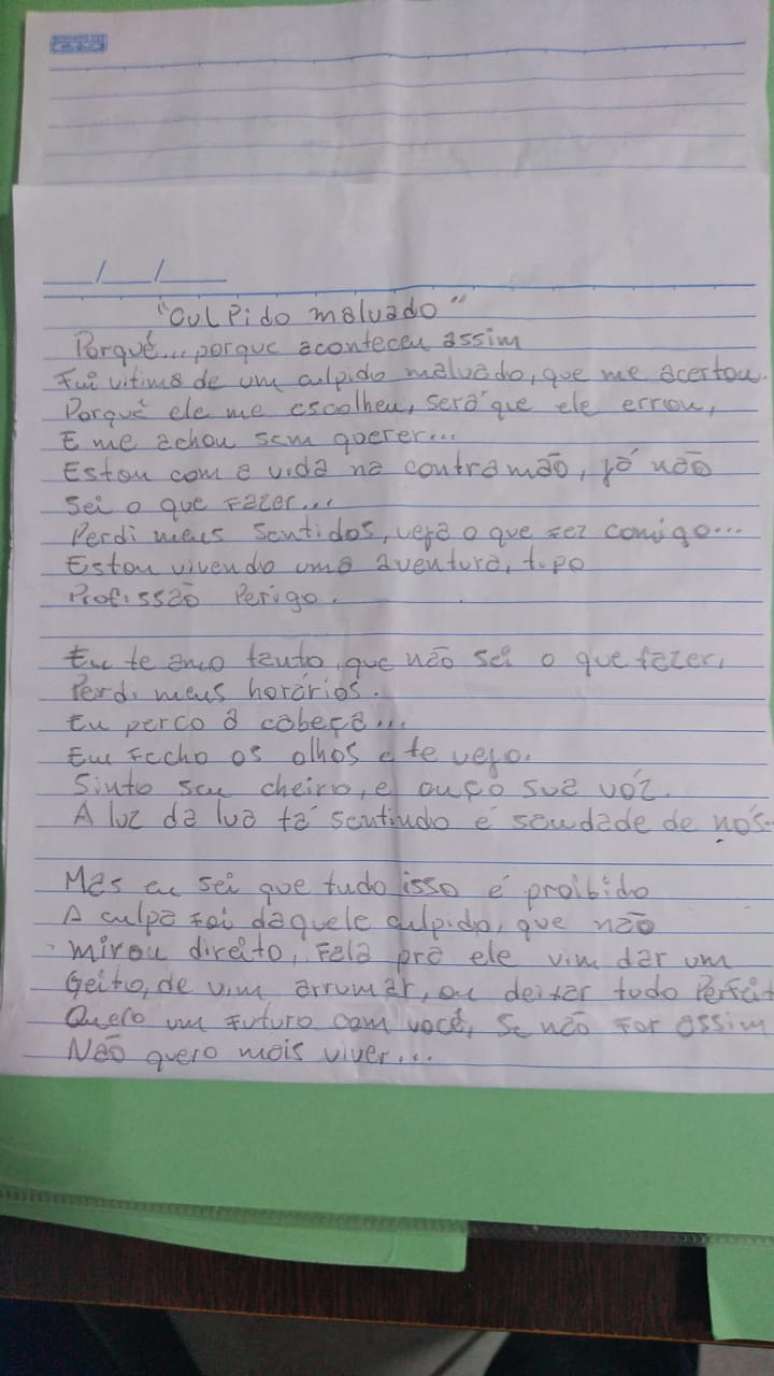 __/__/____
"Culpido malvado"
Porquê... porque aconteceu assim
Fui vitima de um culpido malvado, que me acertou.
Porquê ele me escolheu, será que ele errou,
E me achou sem querer...
Estou com a vida na contramão, já não
Sei o que fazer...
Perdi meus sentidos, veja o que fez comigo...
Estou vivendo uma aventura, tipo
Profissão Perigo.
Eu te amo tanto, que não sei o que fazer,
Perdi meus horários.
Eu perco a cabeça...
Eu fecho os olhos e te vejo.
Sinto seu cheiro, e ouço sua vóz.
A luz da lua tá sentindo é saudade de nós.
Mas eu sei que tudo isso é proibido
A culpa foi daquele culpido, que não
mirou direito, Fala pra ele vim dar um
Geito, de vim arrumar, ou deixar tudo Perfeit
Quero um futuro com você, Se não for assim
Não quero mais viver...